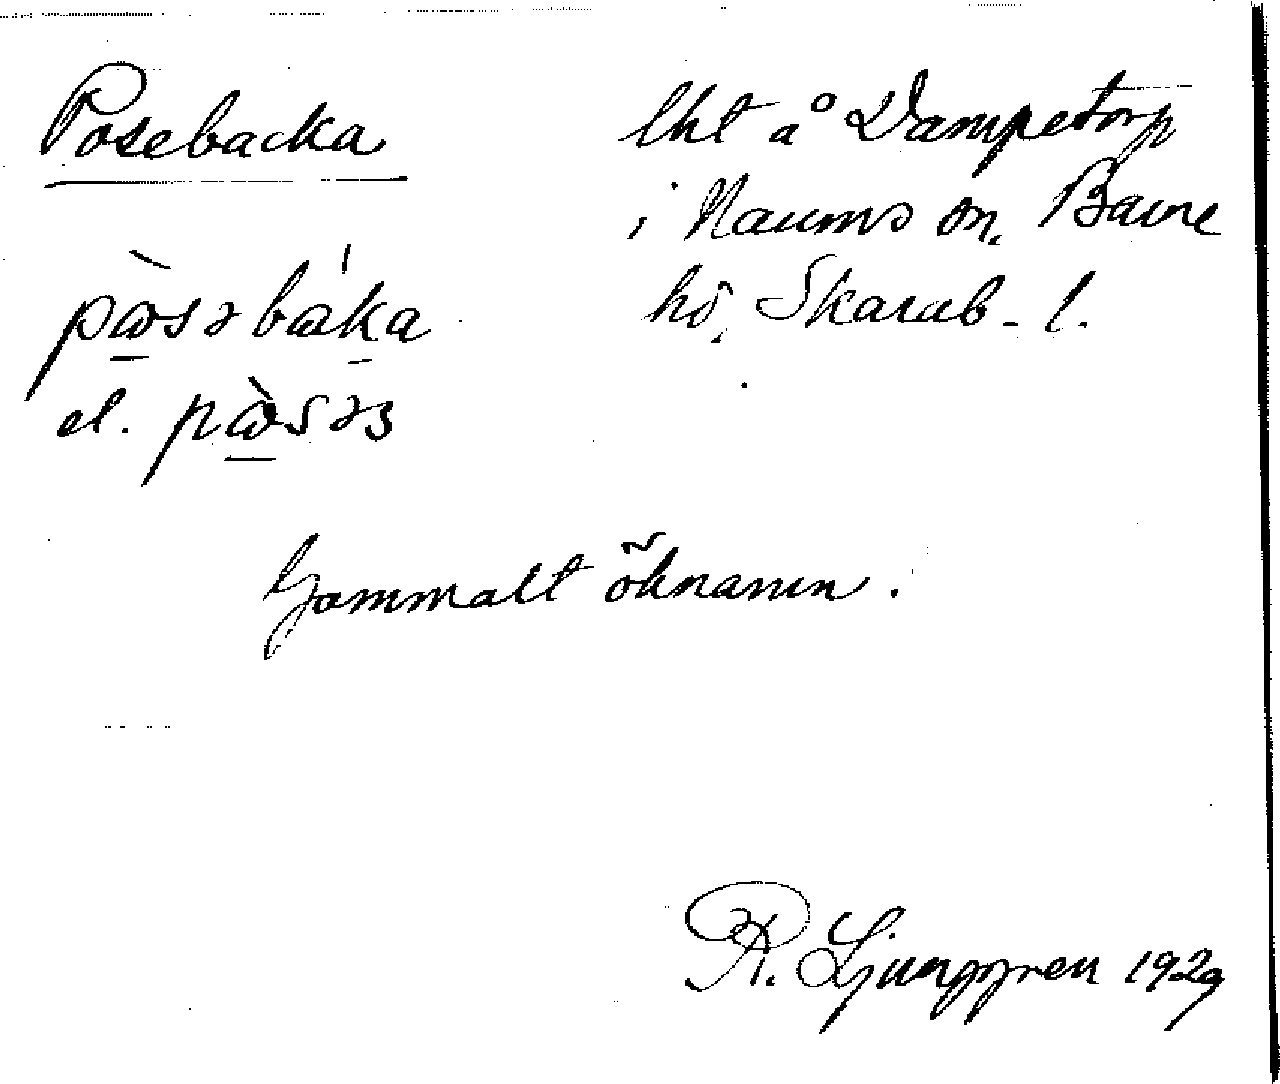 Posebacka
lht å Dampetorp
i Naums sn, Barne
hd, Skarab. l.
pɷ̀səbàka
el. pɷ̀səs
Gammalt öknamn.
R. Ljunggren 1929